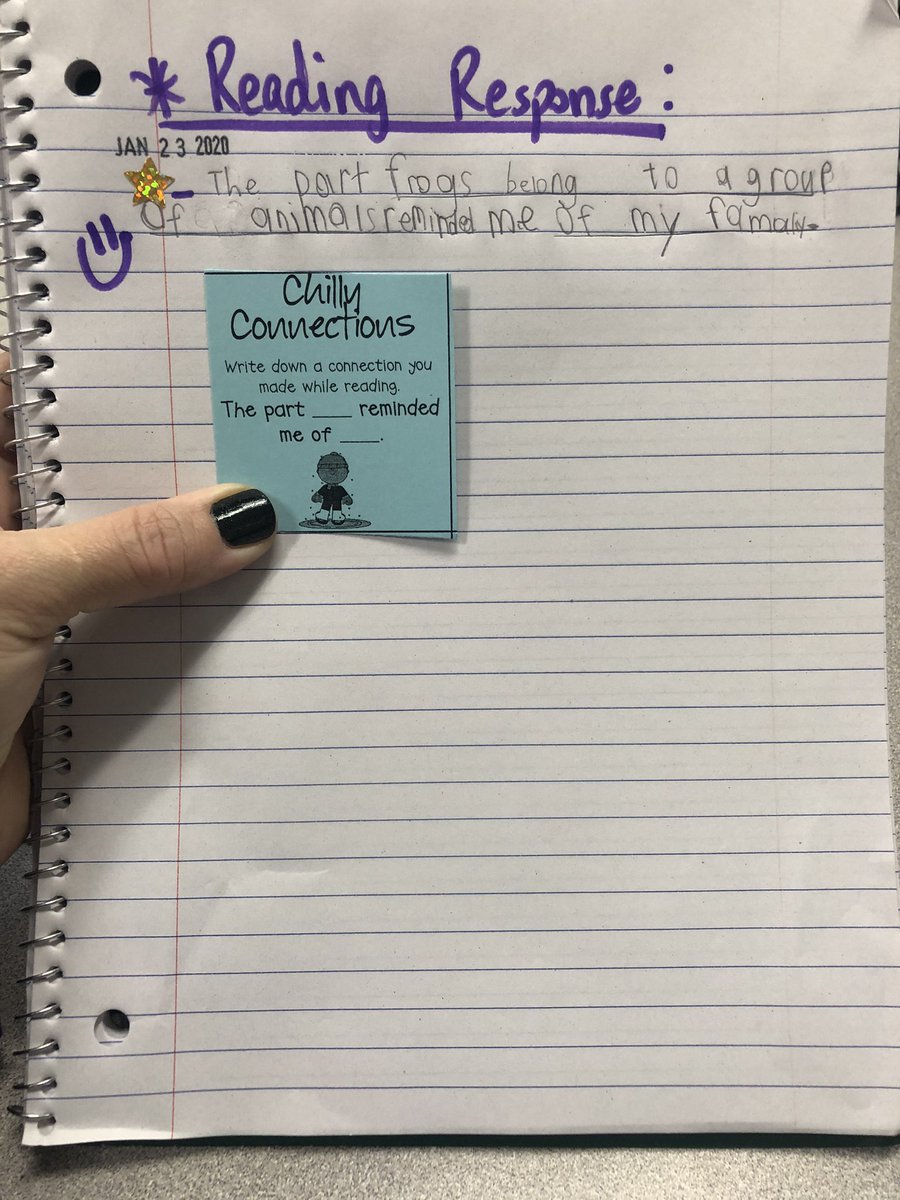 * Reading Response:
JAN 23 2020
The part frogs belong to a group
of animals reminded me of my famaly.
Chilly
Connections
Write down a connection you
made while reading.
The part ____ reminded
me of ____.